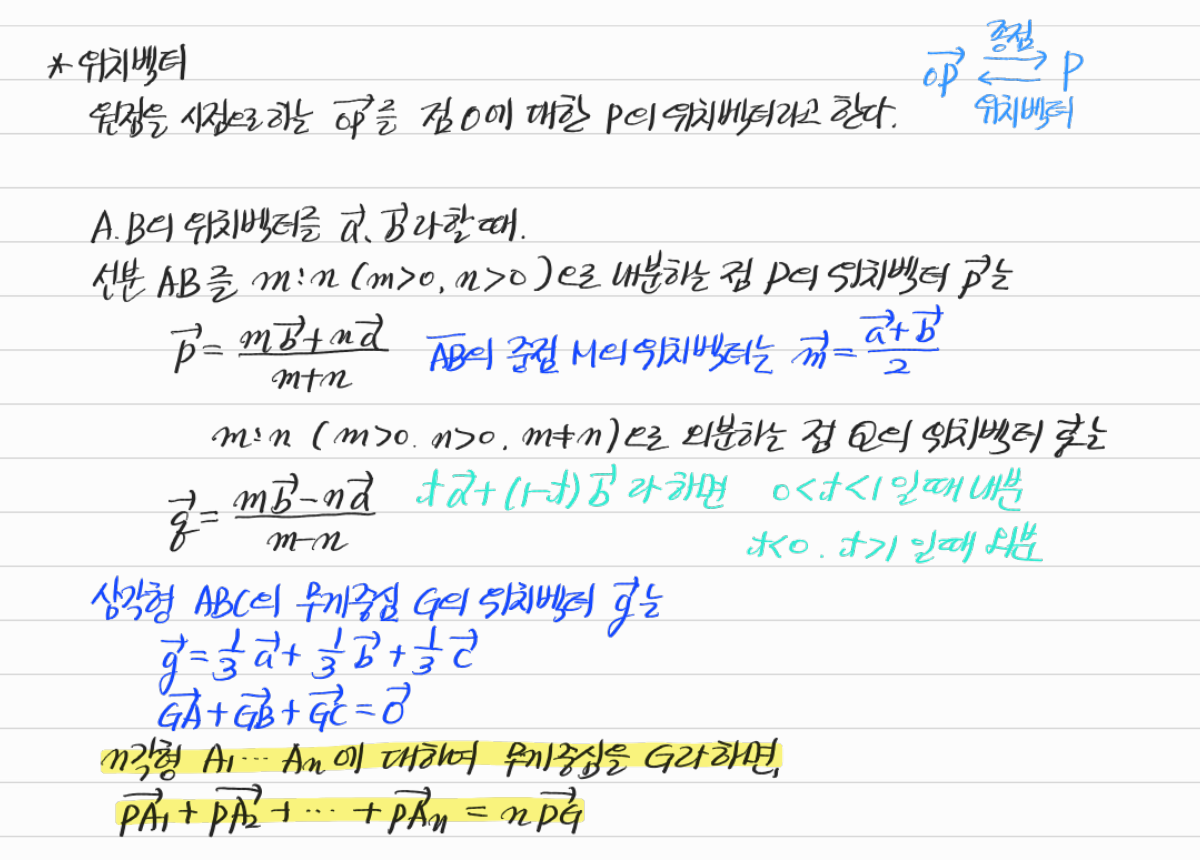 * 위치벡터
원점을 시점으로하는 \(\overrightarrow{OP}\)를 점 O에 대한 P의 위치벡터라고 한다.
종점
\(\overrightarrow{OP}\) ⇄ P
위치벡터
A.B의 위치벡터를 \(\vec{a}\), \(\vec{b}\)라할때.
선분 AB를 m:n (m>0, n>0)으로 내분하는 점 P의 위치벡터 \(\vec{p}\)는
\(\vec{p}=\frac{m\vec{b}+n\vec{a}}{m+n}\) \(\overline{AB}\)의 중점 M의 위치벡터는 \(\vec{m}=\frac{\vec{a}+\vec{b}}{2}\)
m:n (m>0. n>0. m≠n)으로 외분하는 점 Q의 위치벡터 \(\vec{q}\)는
\(\vec{q}=\frac{m\vec{b}-n\vec{a}}{m-n}\) \(t\vec{a}+(1-t)\vec{b}\) 라하면 0<t<1일때 내분
t<0. t>1 일때 외분
삼각형 ABC의 무게중심 G의 위치벡터 \(\vec{g}\)는
\(\vec{g}=\frac{1}{3}\vec{a}+\frac{1}{3}\vec{b}+\frac{1}{3}\vec{c}\)
\(\overrightarrow{GA}+\overrightarrow{GB}+\overrightarrow{GC}=\vec{0}\)
n각형 A₁⋯Aₙ에 대하여 무게중심을 G라하면,
\(\overrightarrow{PA_1}+\overrightarrow{PA_2}+\cdots+\overrightarrow{PA_n}=n\overrightarrow{PG}\)